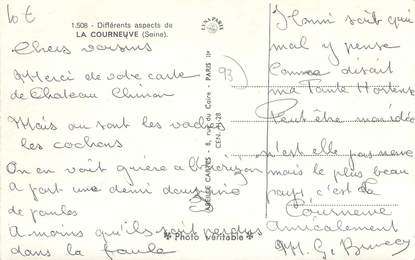 lot
1.508 - Différents aspects de
LA COURNEUVE (Seine).
Chers voisins
Merci de votre carte
de Chateau Chinon
Mais ou sont les vaches
les cochons
On en voit guère a l'horizon
A part une demi douzaine
de poules
A moins qu'ils soit perdus
dans la foule
LUNA PARIS
ABEILLE CARTES - 8, rue du Caire - PARIS IIe
CEN. 21-28
* Photo véritable *
93
Honni soit qui
mal y pense
Comme disait
ma Tante Hortense
Peut être mon idée
n'est elle pas neuve
mais le plus beau
pays c'est La
Courneuve
Amicalement